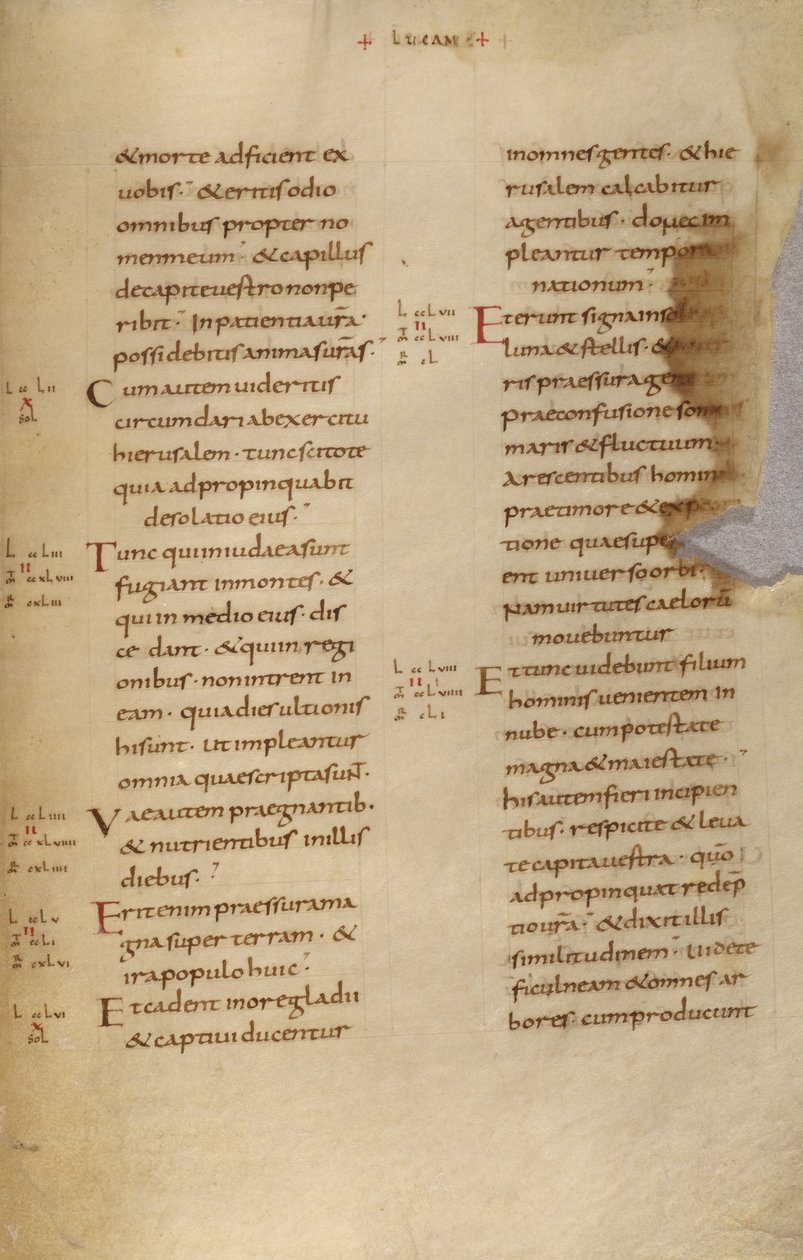 + LUCAM +
&morte adficient ex
uobis. & eritis odio
omnibus propter no
men meum & capillus
de capite uestro non pe
ribit. In patientia ur̄a.
possidebitis animas ur̄as.
L cc Lii
X
soL
Cum autem uideritis
circumdari ab exercitu
hierusalem. tunc scitote
quia adpropinquabit
desolatio eius.
L cc Liii
II
cc xL viii
cxLiii
Tunc qui in iudaea sunt
fugiant in montes. &
qui in medio eius. dis
cedant. & qui in regi
onibus. non intrent in
eam. quia dies ultionis
hi sunt. ut impleantur
omnia quae scripta sunt.
L cc Liiii
II
cc xLviiii
cxLiiii
Vae autem praegnantib.
& nutrientibus in illis
diebus.
L cc Lv
II
cc Li
cxLvi
Erit enim praessura ma
gna super terram. &
ira populo huic.
L cc Lvi
X
soL
Et cadent in ore gladii
& captiui ducentur
in omnes gentes. & hie
rusalem calcabitur
a gentibus. donec im
pleantur tempora
nationum
L cc Lvii
II
cc Lviii
cL
Et erunt signa in sole
luna & stellis. &
ris praessura gen
prae confusione son
maris & fluctuum.
Arescentibus homin
prae timore & expec
tione quae supe
ent uniuerso orbi.
Nam uirtutes caelorū
mouebuntur
L cc Lviii
II
cc Lviiii
cLi
Et tunc uidebunt filium
hominis uenientem in
nube. cum potestate
magna & maiestate.
his autem fieri incipien
tibus. respicite & leua
te capita uestra. quō
adpropinquat redēp
tio ur̄a. & dixit illis
similitudinem. Uidete
ficulneam & omnes ar
bores. cum producunt